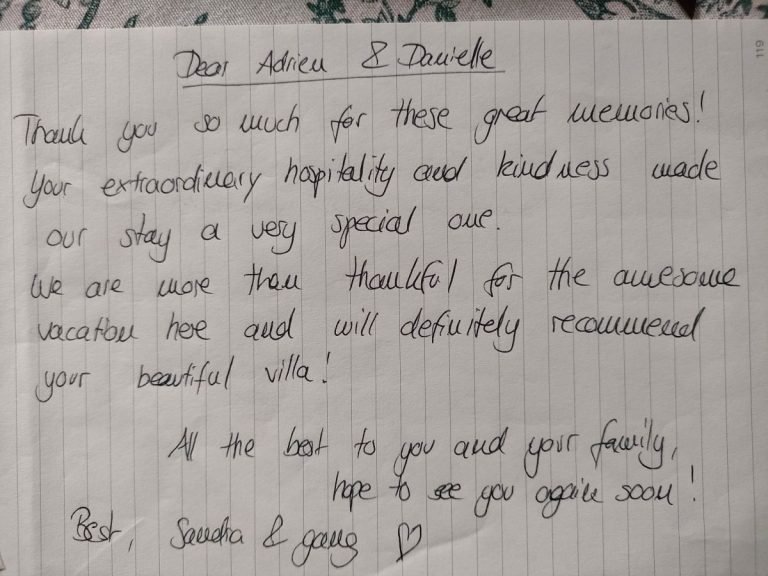 Dear Adrien & Danielle
Thank you so much for these great memories!
Your extraordinary hospitality and kindness made
our stay a very special one.
We are more than thankful for the awesome
vacation here and will definitely recommend
your beautiful villa!
All the best to you and your family,
hope to see you again soon!
Best, Sandra & gang ♡
119